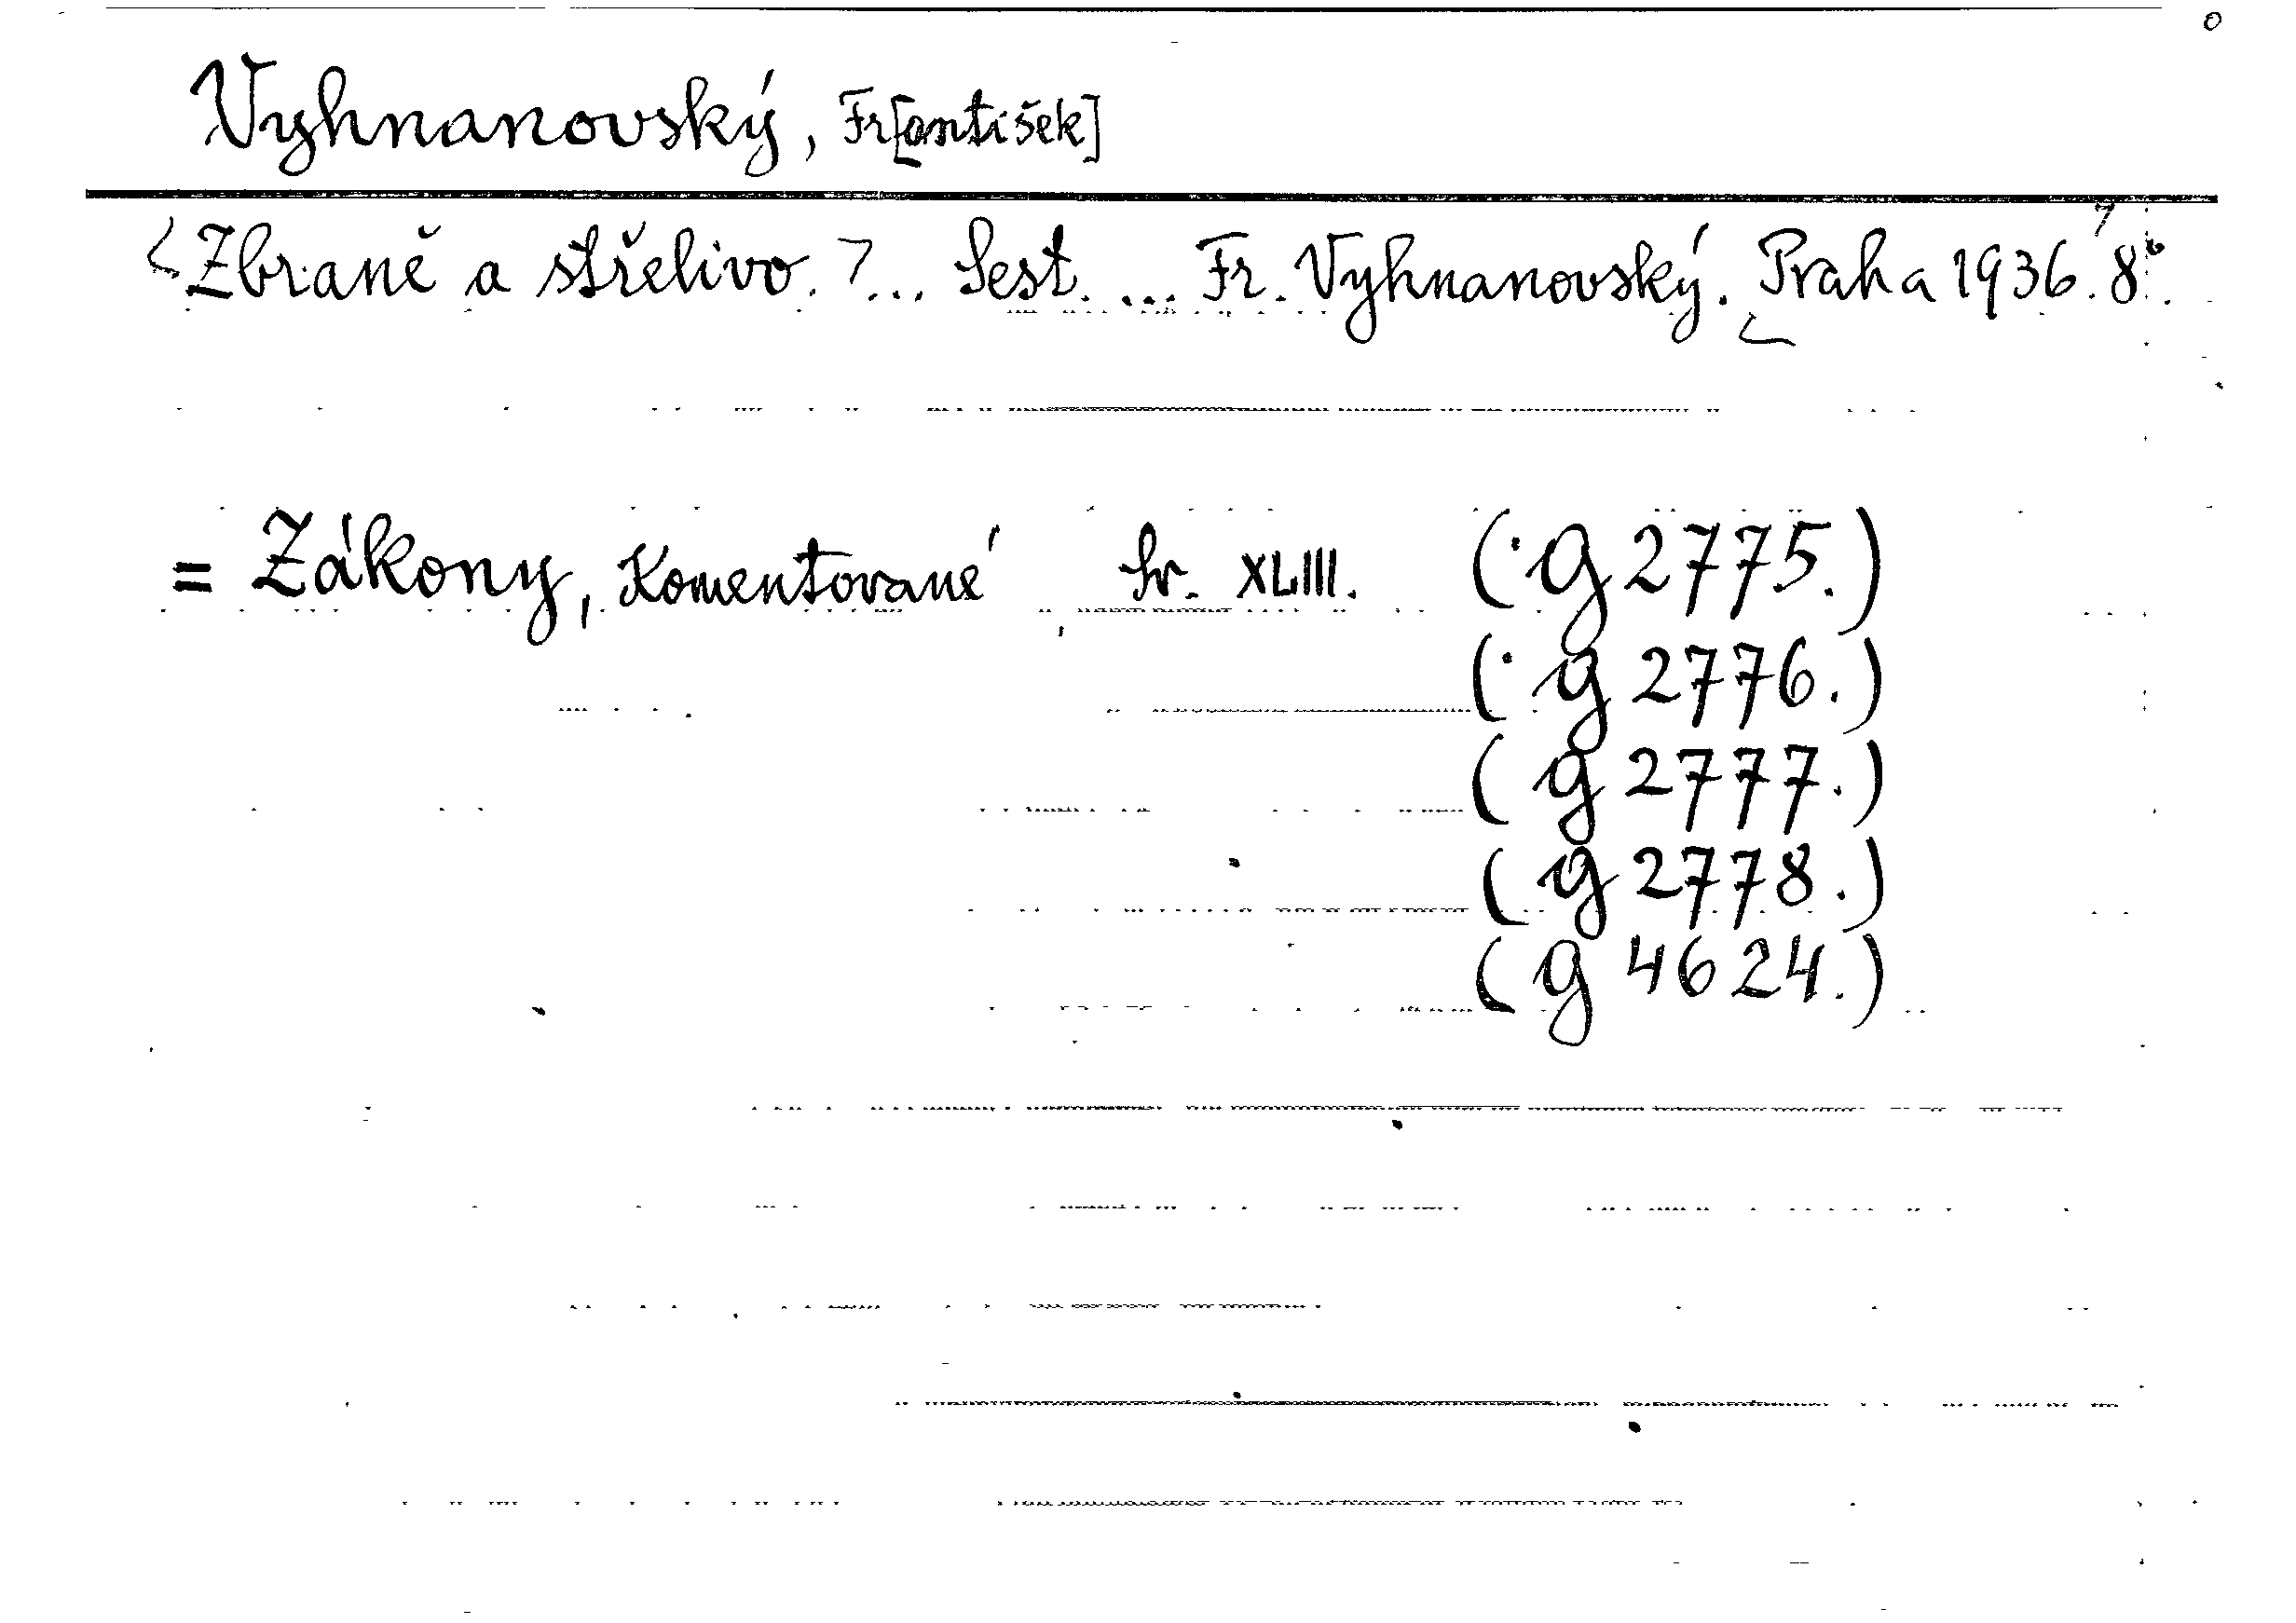 Vyhnanovský, Fr[antišek]
Zbraně a střelivo. ... Sest. ... Fr. Vyhnanovský. Praha 1936. 8°.
= Zákony, Komentované Sv. XLIII. (g 2775.)
(g 2776.)
(g 2777.)
(g 2778.)
(g 4624.)